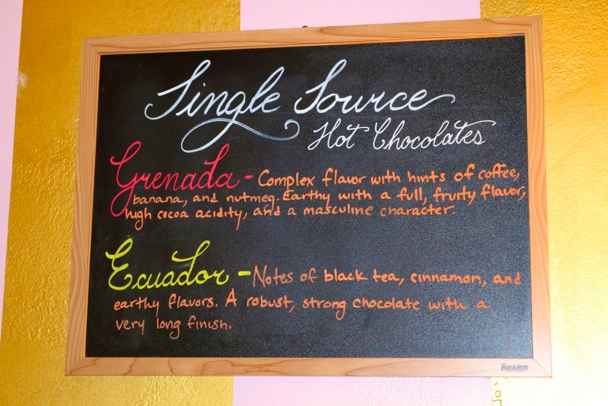 Single Source
Hot Chocolates
Grenada - Complex flavor with hints of coffee,
banana, and nutmeg. Earthy with a full, fruity flavor,
high cocoa acidity, and a masculine character.
Ecuador - Notes of black tea, cinnamon, and
earthy flavors. A robust, strong chocolate with a
very long finish.
BOARD